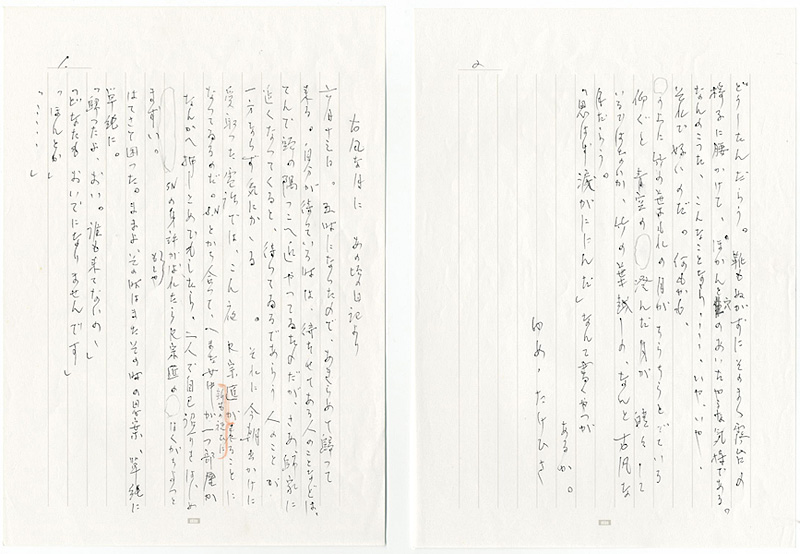 1.
古風な月に あの頃日記より
六月十三日。 五時になったので、あきらめて帰って
来る。自分が待っている時は、待たせてある人のことなどは、
てんで頭の隅っこへ追いやってゐるんだが、さあ帰家に
近くなってくると、待ってゐるであらう人のことが
一方ならず気にかゝる 。 それに今朝出かけに
受取った電話では、こん夜 が来ることに
なってゐるのだ。S.Nとかち合って、 が一つ部屋か
なんかへ押しこめでもしたら、二人で自己紹介をはじめ
まずい。
もしや
S.Nの身許がばれたら なくがらりっと
はてさて困った。まゝよ、その時はまたその時の思案、単純に
単純に。
「帰ったよ、おい。誰も来てないの」
「どなたもおいでになりませんです」
「ほんとか」
「・・・・・」
2
どうしたんだらう。靴もぬがずにそのまゝ窓台の
椅子に腰かけて、ぽかんと穴のあいたやうな気持である。
なんのこった、こんなことなら、・・・・いや、いや、
それで好いのだ。何もかも。
うへに竹の葉もれの月がちらちらとでている
仰ぐと 青空の 澄んだ月が 皓々として
いるではないか、竹の葉越しの、なんと古風な
月だらう。
「思はず涙がにじんだ」なんて書くやつが
あるか。
ゆめ・たけひさ